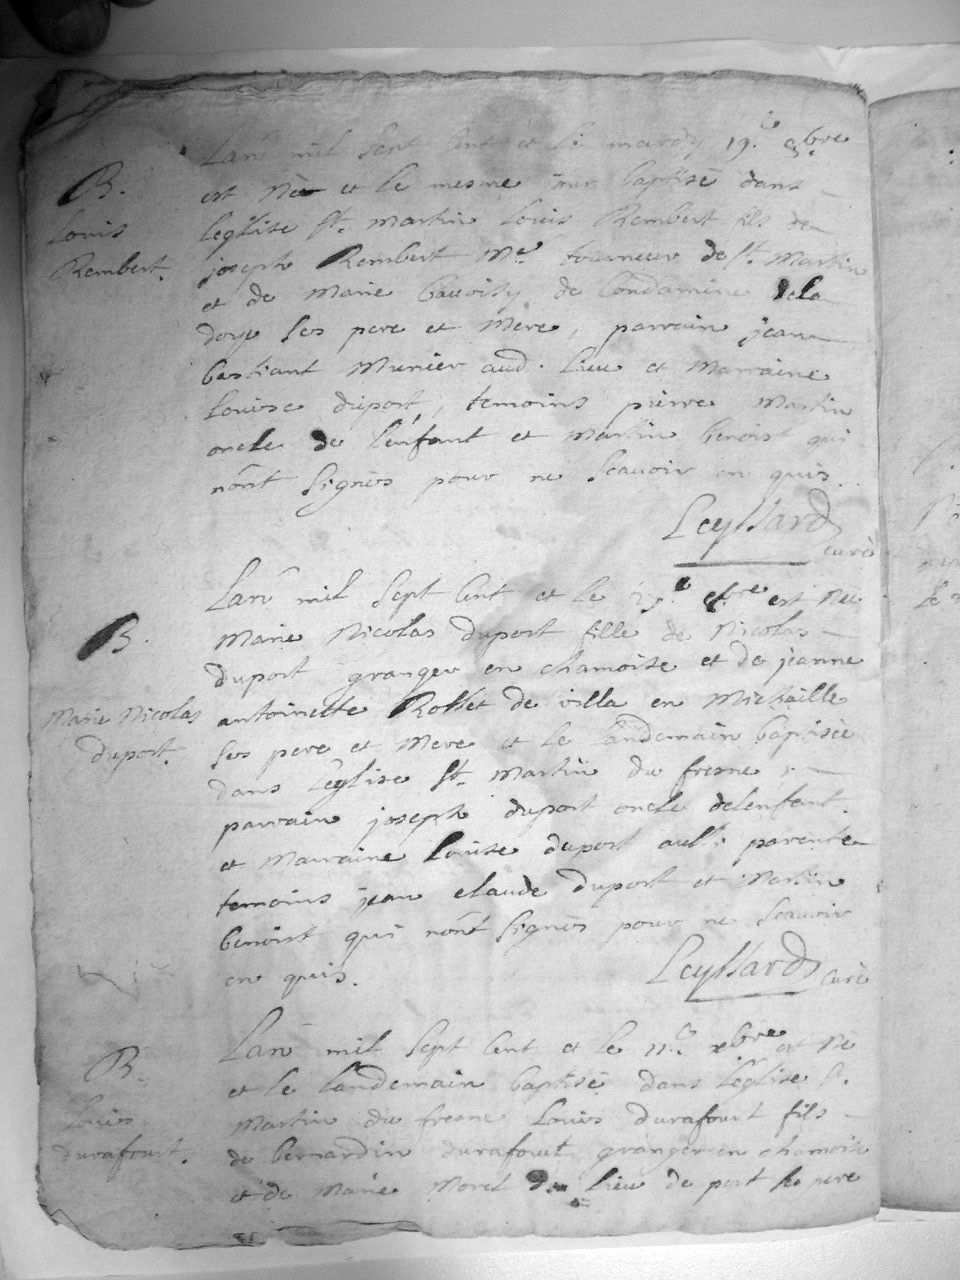 Lan mil sept cent et le mardy 19.e 8bre
B.
est né et le mesme jour baptisé dans
Louis
leglise st. martin Louis Rembert fils de
Rembert.
joseph Rembert me tourneur de st. Martin
et de Marie de Condamine dela
doye ses pere et mere, parrain jean
bastiant Munier aud. lieu et marraine
Louise duport, temoins pierre Martin
oncle de lenfant et martin benoist qui
nont signés pour ne scavoir en quis.
Leyssard
curé
Lan mil sept cent et le est née
B.
Marie Nicolas duport fille de Nicolas
duport granger en chamoise et de jeanne
Marie Nicolas
antoinette Rosset de villa en Michaille
duport.
ses pere et mere et le landemain baptisée
dans leglise st. Martin du fresne
parrain joseph duport oncle delenfant
et marraine Louise duport parente
temoins jean claude duport et Martin
benoist qui nont signés pour ne scavoir
en quis.
Leyssard curé
Lan mil sept cent et le 11.e xbre est né
B.
et le landemain baptisé dans leglise s.
Louis
martin du fresne Louis durafourt fils
durafourt.
de bernardin durafourt granger en chamoise
et de Marie Morel lieu de port ses pere